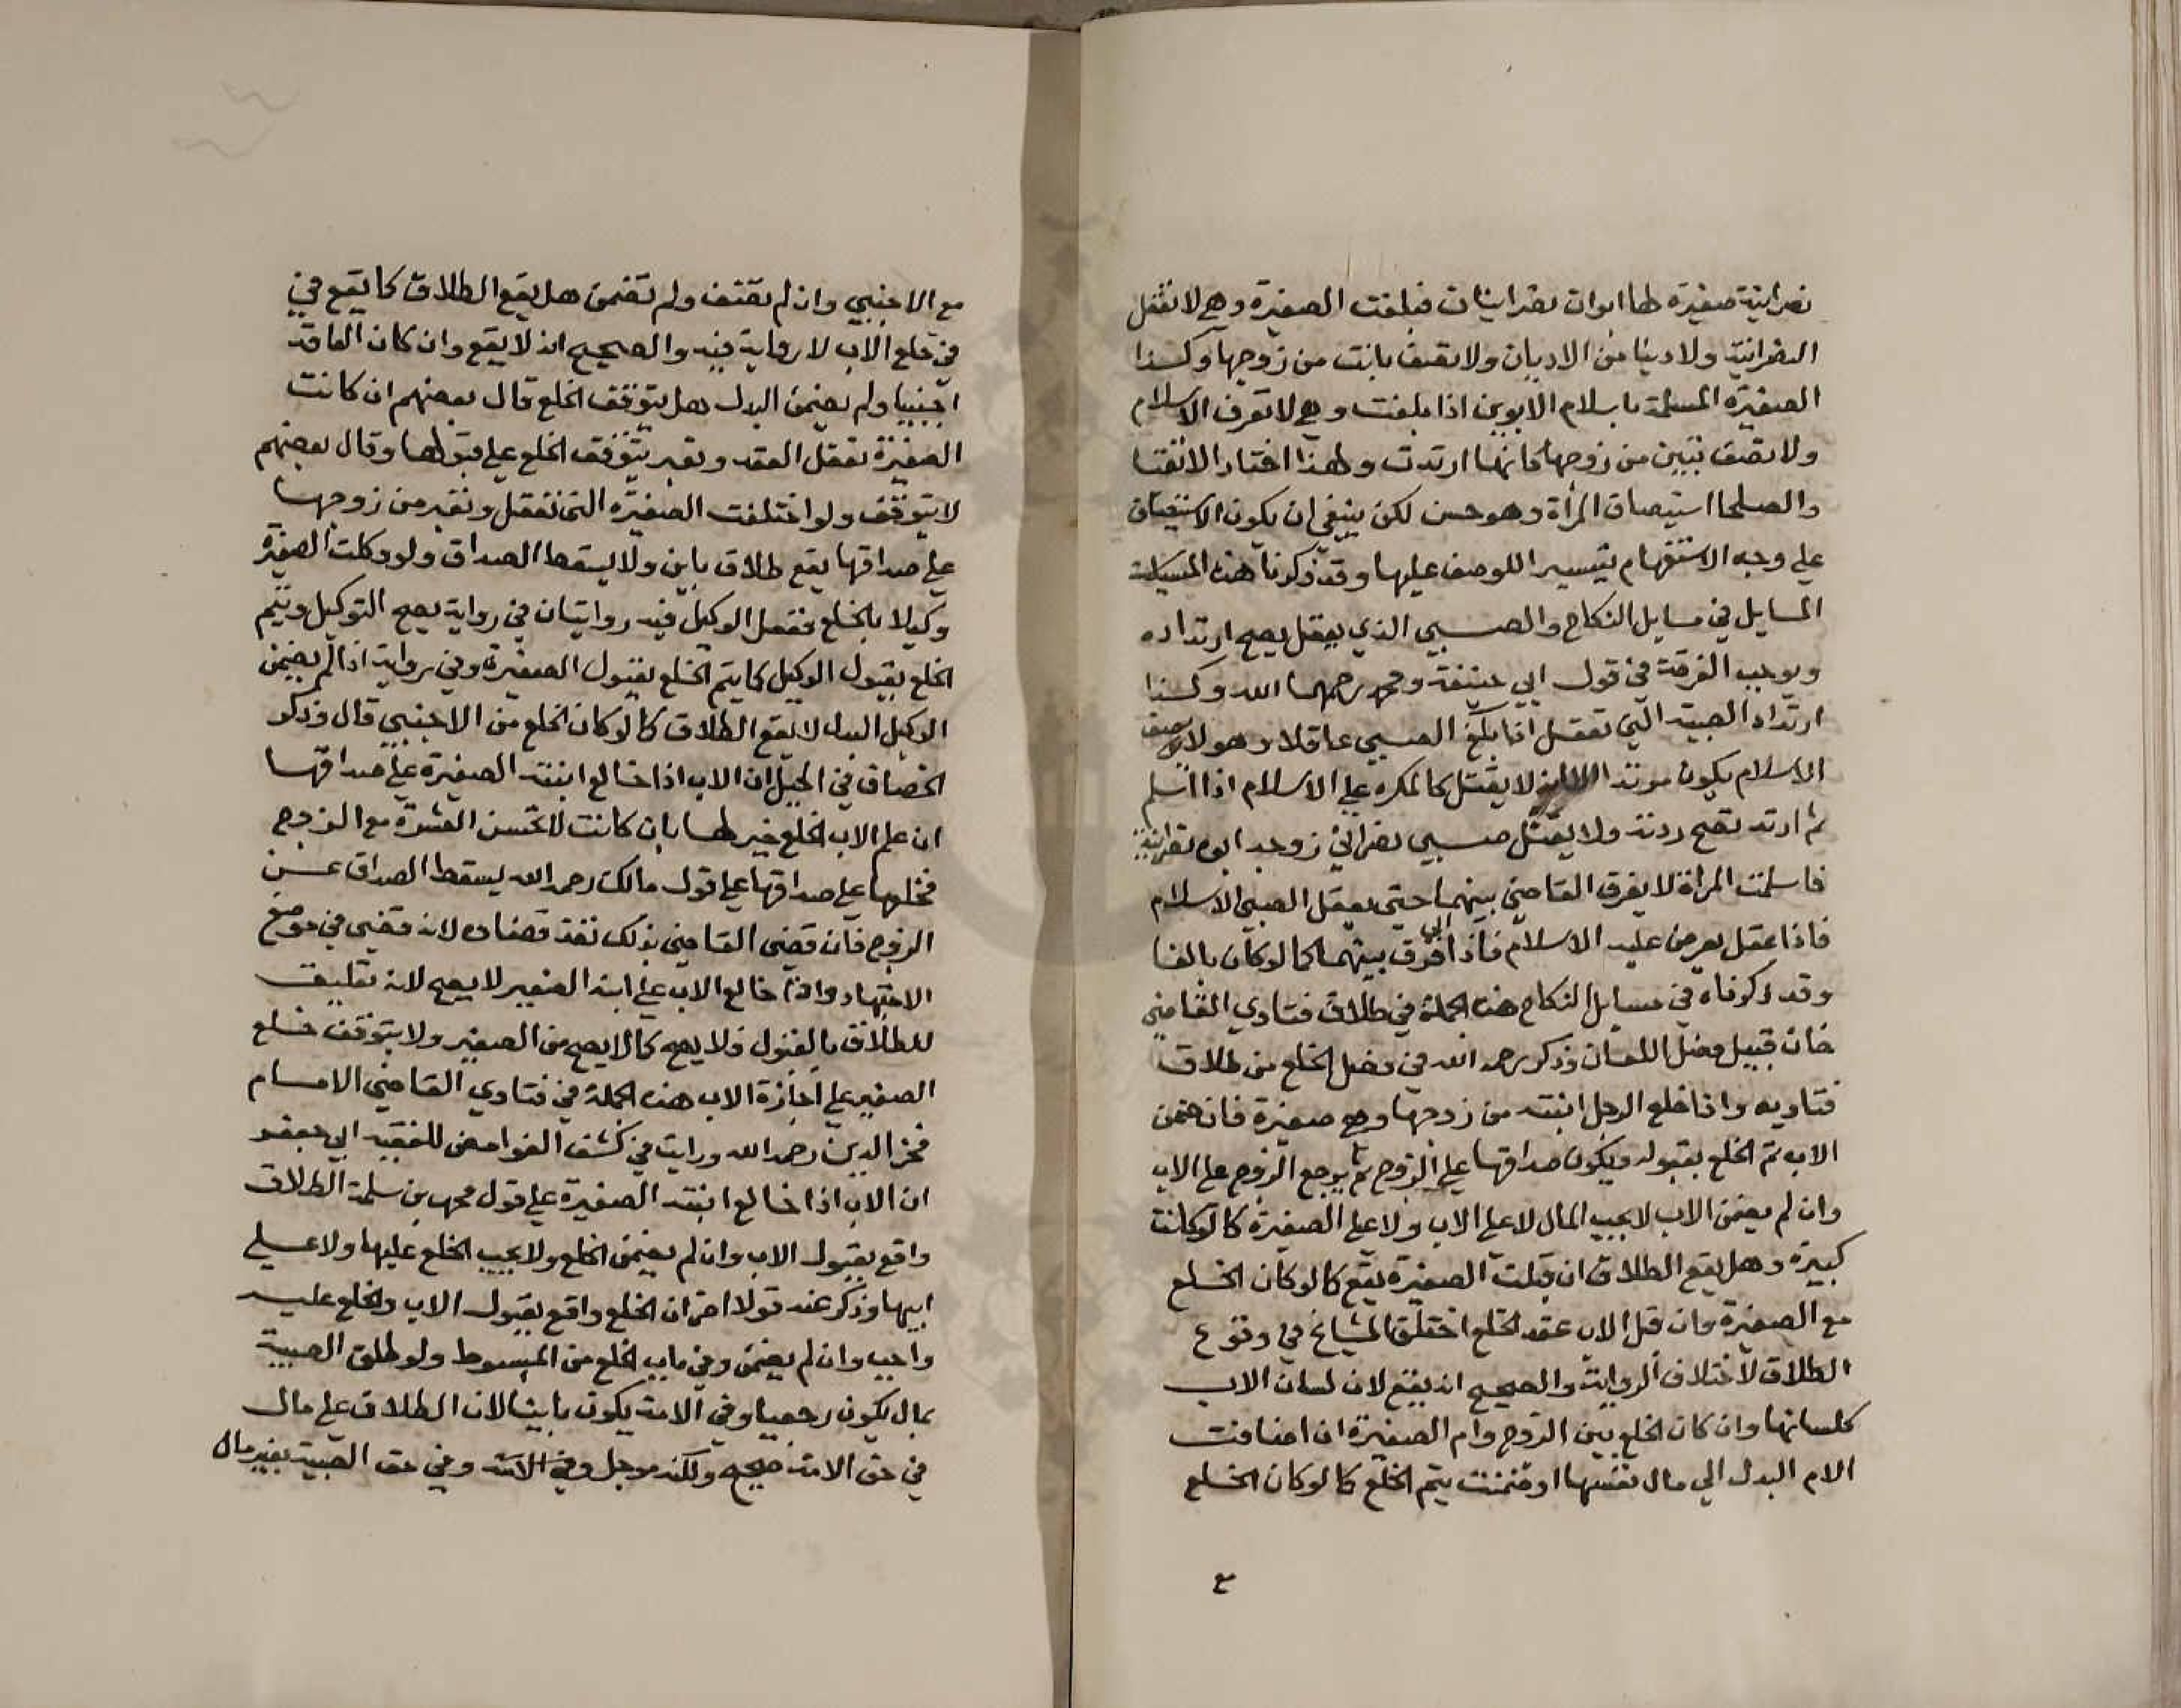 نصرانية صغيرة لها ابوان نصرانيان فبلغت الصغيرة وهي لا تعقل
النصرانية ولا دينا من الاديان ولا تصف بانت من زوجها وكذا
الصغيرة المسلمة باسلام الابوين اذا بلغت وهي لا تعرف الاسلام
ولا تصف تبين من زوجها كانها ارتدت ولهذا اختار الاتقيا
والصلحا استيصاف المرأة وهو حسن لكن ينبغي ان يكون الاستيصاف
علي وجه الاستفهام تيسير اللوصف عليها وقد ذكرنا هذه
المسايل في مسايل النكاح والصبي الذي يعقل يصح ارتداده
ويوجب الفرقة في قول ابي حنيفة ومحمد رحمهما الله وكذا
ارتداد الصبية التي تعقل اذا بلغ الصبي عاقلا وهو لا يصف
الاسلام يكون مرتدا لا يقتل كالمكره علي الاسلام اذا اسلم
ثم ارتد تصح ردته ولا يقتل صبي نصراني زوجه ابوه نصرانية
فاسلمت المراة لا يفرق القاضي بينهما حتى يعقل الصبي الاسلام
فاذا عقل يعرض عليه الاسلام فاذا ابي فرق بينهما كما لو كان بالغا
وقد ذكرناه في مسايل النكاح هذه الجملة في طلاق فتاوي القاضي
خان قبيل فصل اللعان وذكر رحمه الله في فصل الخلع من طلاق
فتاويه واذا خلع الرجل ابنته من زوجها وهي صغيرة فان ضمن
الاب تم الخلع بقبوله ويكون صداقها علي الزوج ثم يرجع الزوج علي الاب
وان لم يضمن الاب لا يجب المال لا علي الاب ولا علي الصغيرة كما لو كانت
كبيرة وهل يقع الطلاق ان قبلت الصغيرة يقع كما لو كان الخلع
مع الصغيرة وان قبل الاب عقد الخلع اختلف المشايخ في وقوع
الطلاق لاختلاف الرواية والصحيح انه يقع لان لسان الاب
كلسانها وان كان الخلع بين الزوج وام الصغيرة ان اضافت
الام البدل الي مال نفسها او ضمنت يتم الخلع كما لو كان الخلع
مع
مع الاجنبي وان لم تضف ولم تضمن هل يقع الطلاق كما يقع في
في خلع الاب لا رواية فيه والصحيح انه لا يقع وان كان العاقد
اجنبيا ولم يضمن البدل هل يتوقف الخلع قال بعضهم ان كانت
الصغيرة تعقل العقد وتعبر يتوقف الخلع علي قبولها وقال بعضهم
لا يتوقف ولو اختلعت الصغيرة التي تعقل وتعبر من زوجها
علي صداقها يقع طلاق باين ولا يسقط الصداق ولو وكلت الصغيرة
وكيلا بالخلع ففعل الوكيل فيه روايتان في رواية يصح التوكيل ويتم
الخلع بقبول الوكيل كما يتم الخلع بقبول الصغيرة وفي رواية اذا لم يضمن
الوكيل البدل لا يقع الطلاق كما لو كان الخلع من الاجنبي قال وذكر
الخصاف في الحيل ان الاب اذا خالع ابنته الصغيرة علي صداقها
ان علم الاب الخلع خير لها بان كانت لا تحسن العشرة مع الزوج
فخلعها علي صداقها علي قول مالك رحمه الله يسقط الصداق عن
الزوج فان قضى القاضي بذلك نفذ قضاه لانه قضى في موضع
الاجتهاد واذا خالع الاب علي ابنه الصغير لا يصح لانه تعليق
للطلاق بالقبول فلا يصح كما لا يصح من الصغير ولا يتوقف خلع
الصغير علي اجازة الاب هذه الجملة في فتاوي القاضي الامام
فخر الدين رحمه الله ورايت في كشف الغوامض للفقيه ابي جعفر
ان الاب اذا خالع ابنته الصغيرة علي قول محمد بن سلمة الطلاق
واقع بقبول الاب وان لم يضمن الخلع ولا يجب الخلع عليها ولا علي
ابيها وذكر عنه قولا اخر ان الخلع واقع بقبول الاب والخلع عليه
واجب وان لم يضمن وفي باب الخلع من المبسوط ولو طلق الصبية
بمال يكون رجعيا وفي الامة يكون باينا لان الطلاق علي مال
في حق الامة صحيح ولكنه موجل وفي حق الصبية بغير مال